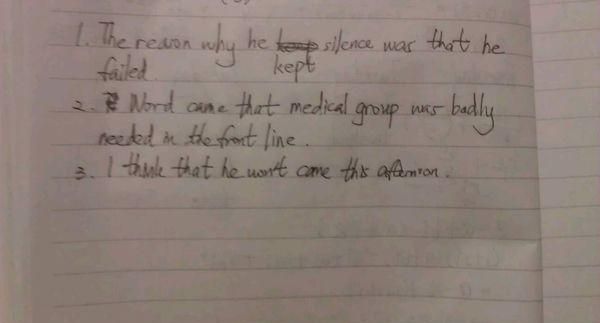 1. The reason why he silence was that he
kept
failed.
2. Word came that medical group was badly
needed in the front line.
3. I think that he won't come this afternoon.